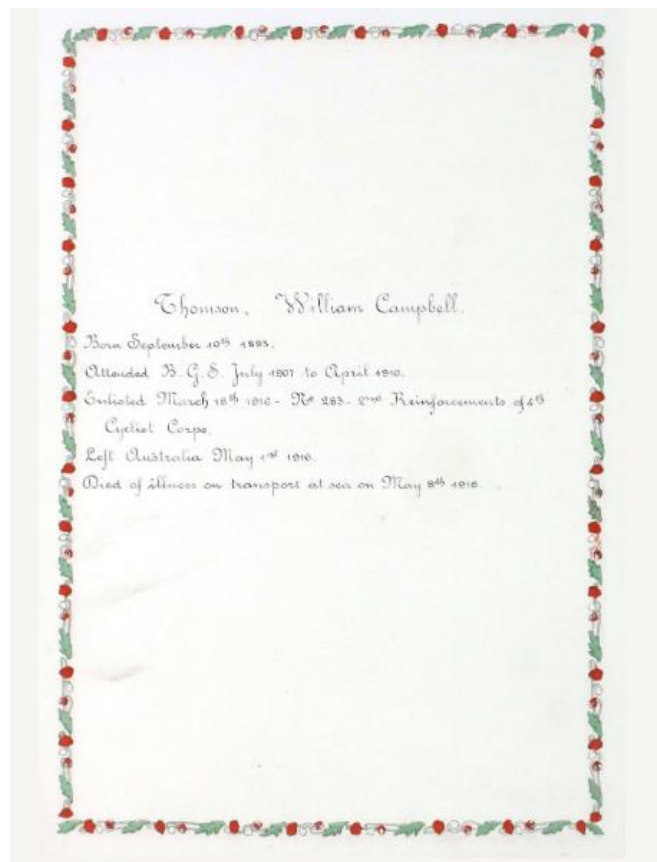 Thomson, William Campbell.
Born September 10th 1893.
Attended B. G. S. July 1907 to April 1910.
Enlisted March 18th 1916 - No 283 - 2nd Reinforcements of 4th
Cyclist Corps.
Left Australia May 1st 1916.
Died of illness on transport at sea on May 8th 1916.